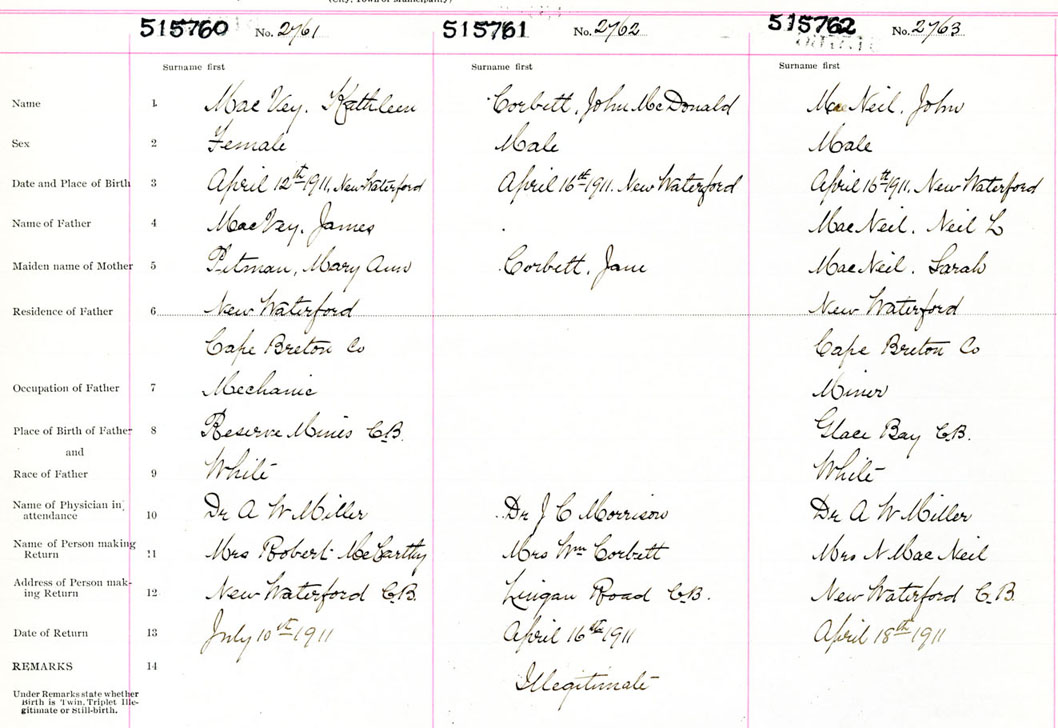 (City, Town or Municipality)
515760 No. 2761 515761 No. 2762 515762 No. 2763
Surname first Surname first Surname first
Name 1 MacVey, Kathleen Corbett, John McDonald MacNeil, John
Sex 2 Female Male Male
Date and Place of Birth 3 April 12th 1911, New Waterford April 16th 1911. New Waterford April 15th 1911, New Waterford
Name of Father 4 MacVey, James MacNeil, Neil L
Maiden name of Mother 5 Pitman, Mary Ann Corbett, Jane MacNeil, Sarah
Residence of Father 6 New Waterford New Waterford
Cape Breton Co Cape Breton Co
Occupation of Father 7 Mechanic Miner
Place of Birth of Father 8 Reserve Mines C.B. Glace Bay C.B.
and
Race of Father 9 White White
Name of Physician in
attendance 10 Dr A W Miller Dr J C Morrison Dr A W Miller
Name of Person making
Return 11 Mrs Robert McCarthy Mrs Wm Corbett Mrs N MacNeil
Address of Person mak-
ing Return 12 New Waterford C.B. Lingan Road C.B. New Waterford C.B.
Date of Return 13 July 10th 1911 April 16th 1911 April 18th 1911
REMARKS 14 Illegitimate
Under Remarks state whether
Birth is Twin, Triplet Ille-
gitimate or Still-birth.